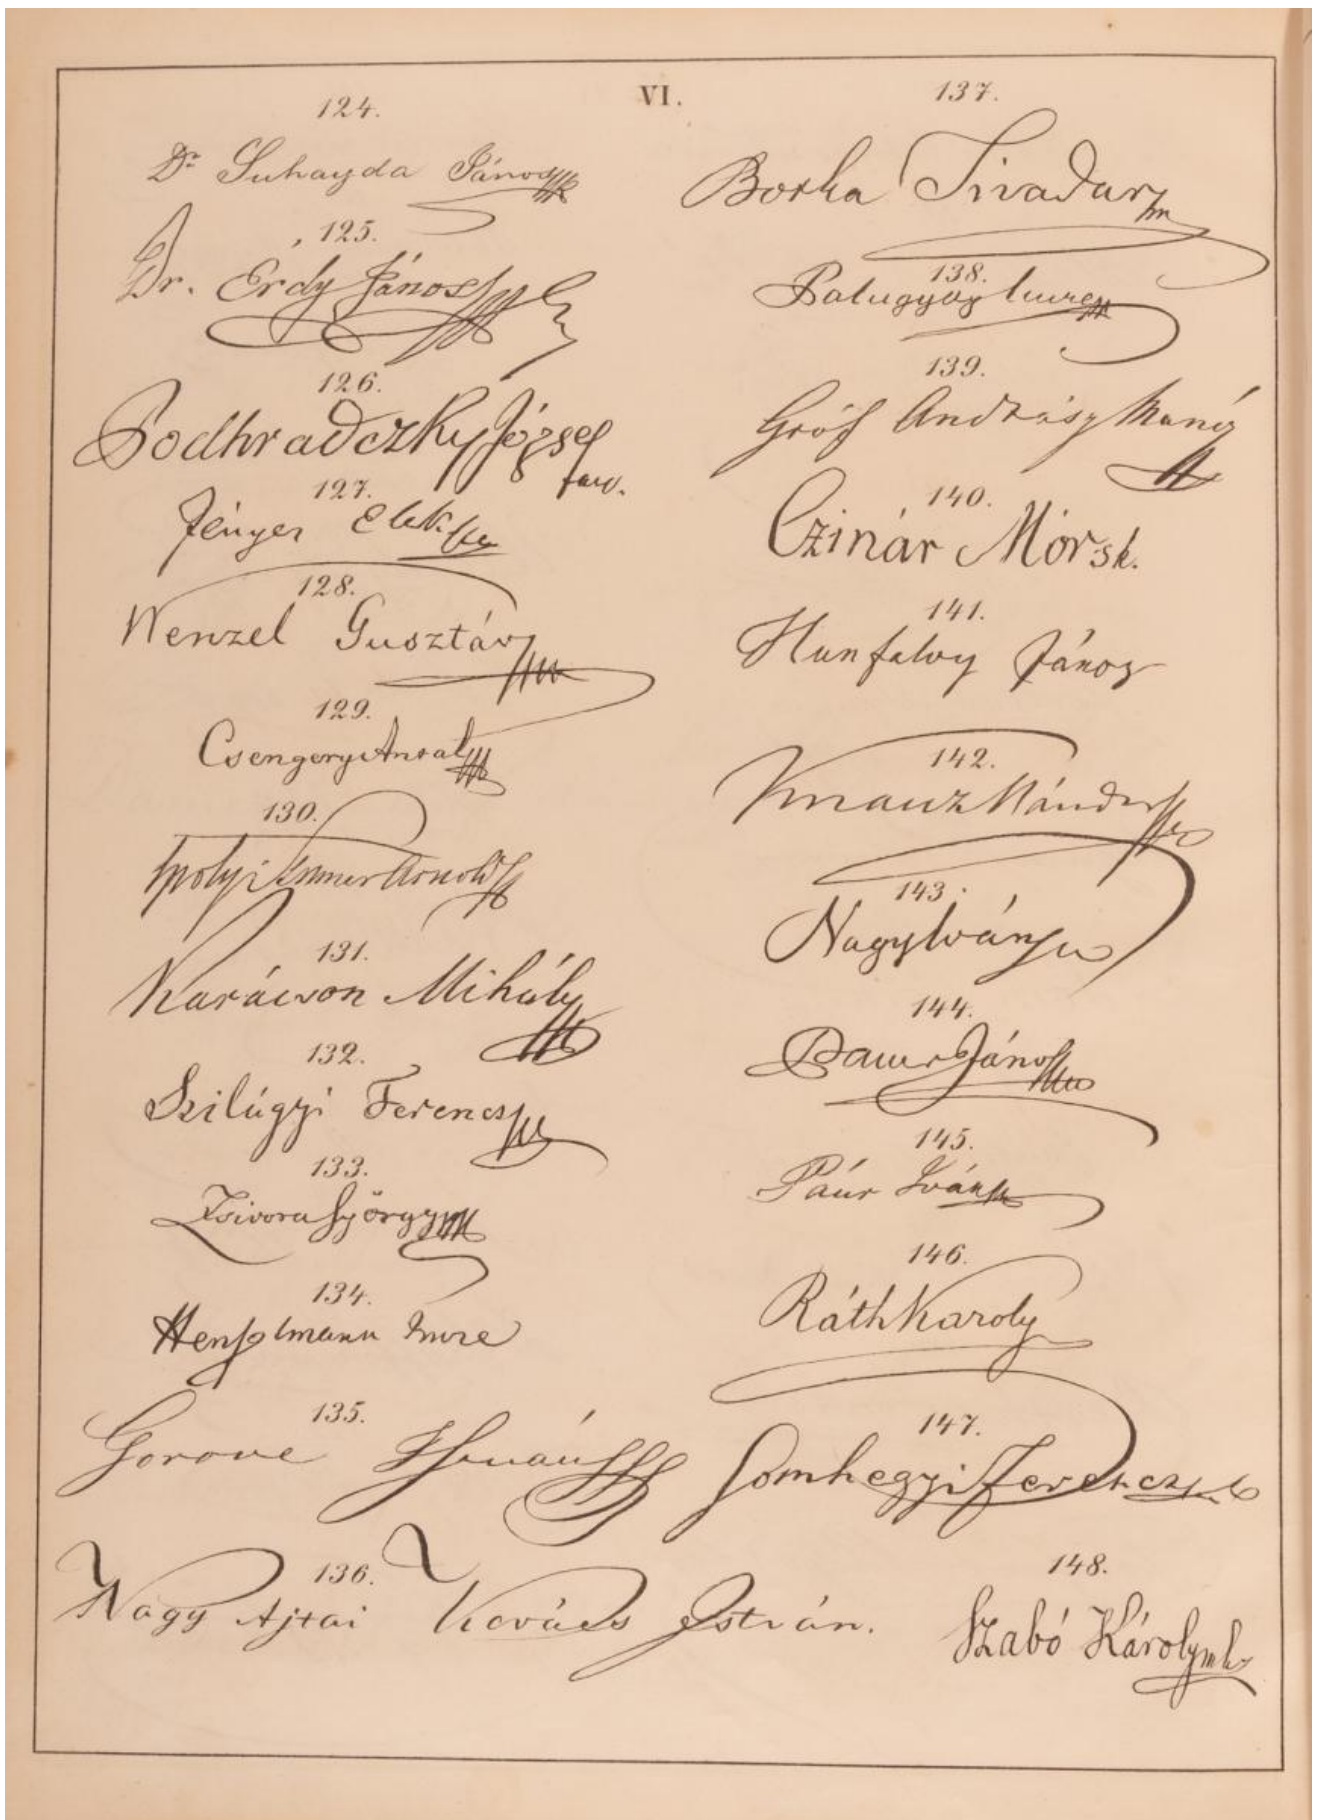 VI.
124.
Dr Suhayda János
125.
Dr. Érdy János
126.
Podhradczky József
127.
Fényes Elek
128.
Wenzel Gusztáv
129.
Csengery Antal
130.
Ipolyi Stummer Arnold
131.
Karácson Mihály
132.
Szilágyi Ferencz
133.
Zsivora György
134.
Henszlmann Imre
135.
Gorove István
136.
Nagy Ajtai Kovács István.
137.
Borka Tivadar
138.
Palugyay Imre
139.
Gróf Andrásy Manó
140.
Czinár Mór sk.
141.
Hunfalvy János
142.
Knauz Nándor
143.
Nagy Iván
144.
Pauer János
145.
Paúr Iván
146.
Ráth Károly
147.
Somhegyi Ferencz
148.
Szabó Károly mk